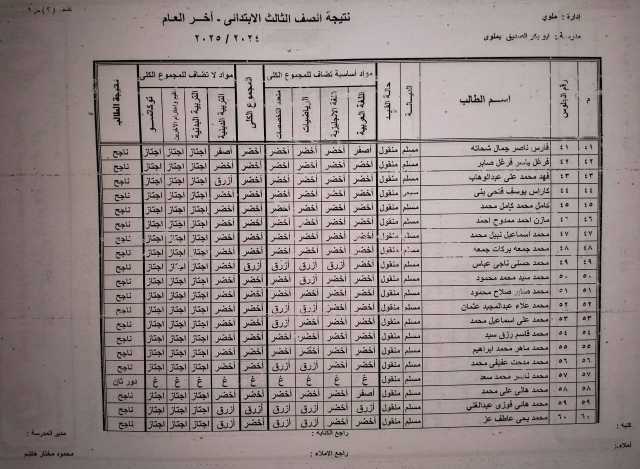 إدارة : ملوي
نتيجة الصف الثالث الابتدائى - أخر العام
مدرسة : ابو بكر الصديق بملوى
٢٠٢٤ / ٢٠٢٥
م
رقم الجلوس
اسم الطالب
الديانة
حالة القيد
مواد أساسية تضاف للمجموع الكلى
اللغة العربية
اللغة الانجليزية
الرياضيات
متعدد التخصصات
المجموع الكلى
مواد لا تضاف للمجموع الكلى
التربية الدينية
التربية البدنية
قيم واحترام الآخرين
توكاتسو
نتيجة الطالب
٤١ ٤١ فارس ناصر جمال شحاته مسلم منقول أصفر أخضر أخضر أخضر أخضر أصفر اجتاز اجتاز اجتاز ناجح
٤٢ ٤٢ فرغل ياسر فرغل صابر مسلم منقول أخضر أخضر أخضر أخضر أخضر أخضر اجتاز اجتاز اجتاز ناجح
٤٣ ٤٣ فهد محمد على عبدالوهاب مسلم منقول أخضر أخضر أخضر أخضر أخضر أزرق اجتاز اجتاز اجتاز ناجح
٤٤ ٤٤ كاراس يوسف فتحى منقول أخضر أخضر أخضر أخضر أخضر أخضر اجتاز اجتاز اجتاز ناجح
٤٥ ٤٥ كامل محمد كامل محمد مسلم منقول أخضر أخضر أخضر أخضر أخضر أخضر اجتاز اجتاز اجتاز ناجح
٤٦ ٤٦ مازن احمد ممدوح احمد مسلم منقول أخضر أخضر أخضر أخضر أخضر أخضر اجتاز اجتاز اجتاز ناجح
٤٧ ٤٧ محمد اسماعيل نبيل محمد مسلم منقول أخضر أخضر أخضر أخضر أخضر أخضر اجتاز اجتاز اجتاز ناجح
٤٨ ٤٨ محمد جمعه بركات جمعه مسلم منقول أخضر أخضر أخضر أخضر أخضر أخضر اجتاز اجتاز اجتاز ناجح
٤٩ ٤٩ محمد حسنى ناجى عباس مسلم منقول أخضر أزرق أزرق أزرق أزرق أخضر اجتاز اجتاز اجتاز ناجح
٥٠ ٥٠ محمد سيد محمد محمود مسلم منقول أخضر أخضر أزرق أزرق أخضر أخضر اجتاز اجتاز اجتاز ناجح
٥١ ٥١ محمد صابر صلاح محمود مسلم منقول أخضر أخضر أخضر أخضر أخضر أخضر اجتاز اجتاز اجتاز ناجح
٥٢ ٥٢ محمد علاء عبدالمجيد عثمان مسلم منقول أخضر أخضر أزرق أزرق أخضر أخضر اجتاز اجتاز اجتاز ناجح
٥٣ ٥٣ محمد على اسماعيل محمد مسلم منقول أخضر أخضر أخضر أخضر أخضر أخضر اجتاز اجتاز اجتاز ناجح
٥٤ ٥٤ محمد قاسم رزق سيد مسلم منقول أخضر أخضر أخضر أخضر أخضر أخضر اجتاز اجتاز اجتاز ناجح
٥٥ ٥٥ محمد ماهر محمد ابراهيم مسلم منقول أخضر أخضر أخضر أخضر أخضر أخضر اجتاز اجتاز اجتاز ناجح
٥٦ ٥٦ محمد مدحت عفيفى محمد مسلم منقول أخضر أخضر أزرق أزرق أخضر أخضر اجتاز اجتاز اجتاز ناجح
٥٧ ٥٧ محمد ناصر محمد سعد مسلم منقول غ غ غ غ غ غ غ غ غ دور ثان
٥٨ ٥٨ محمد هانى على محمد مسلم منقول أصفر أخضر أخضر أخضر أخضر أخضر اجتاز اجتاز اجتاز ناجح
٥٩ ٥٩ محمد هانى فوزى عبدالغنى مسلم منقول أزرق أخضر أزرق أزرق أخضر أزرق اجتاز اجتاز اجتاز ناجح
٦٠ ٦٠ محمد يحى عاطف عز مسلم منقول أزرق أخضر أزرق أزرق أزرق أزرق اجتاز اجتاز اجتاز ناجح
كتبه :
راجع الكتابه :
مدير المدرسة :
أملاه :
راجع الاملاء :
محمود مختار هاشم